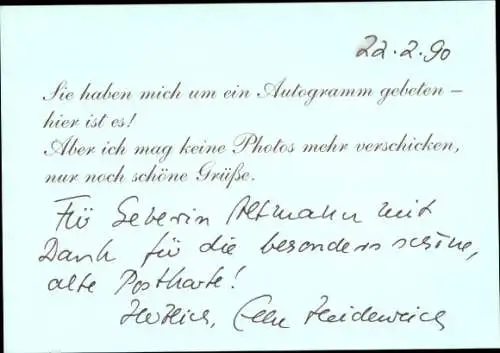 22.2.90
Sie haben mich um ein Autogramm gebeten –
hier ist es!
Aber ich mag keine Photos mehr verschicken,
nur noch schöne Grüße.
Für Severin Altmann mit
Dank für die besonders schöne,
alte Postkarte!
Herzlich, Elke Heidenreich